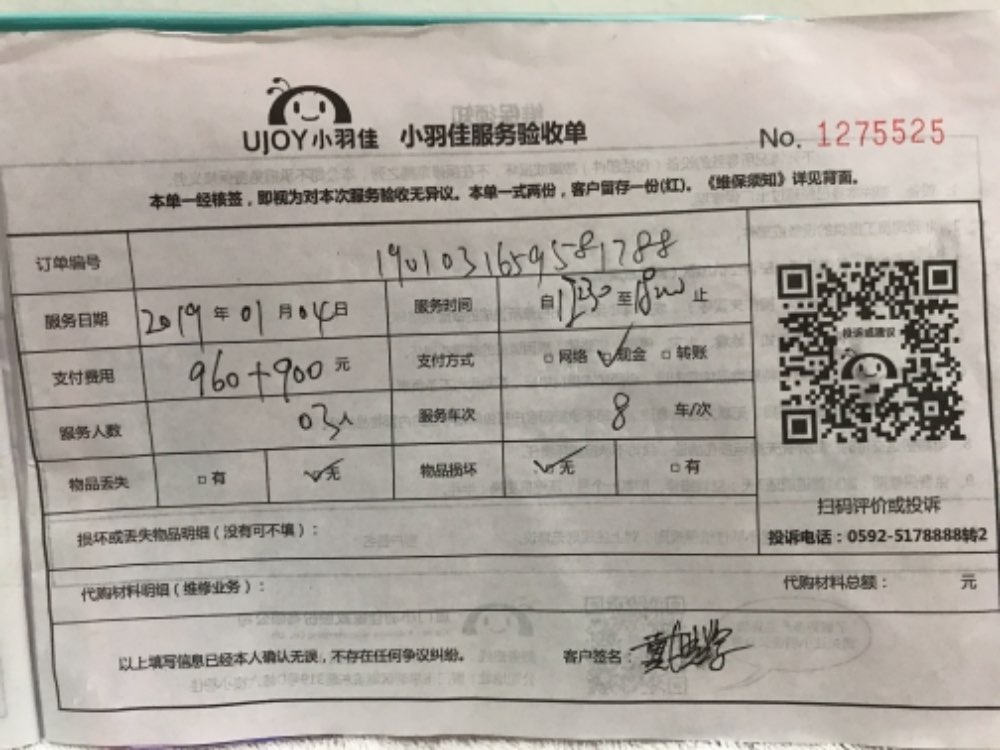 UJOY小羽佳 小羽佳服务验收单
No. 1275525
本单一经核签，即视为对本次服务验收无异议。本单一式两份，客户留存一份(红)。《维保须知》详见背面。
订单编号 1901031659581788
服务日期 2019年01月04日 服务时间 自1230至1800止
支付费用 960+900元 支付方式 □网络 ✓现金 □转账
服务人数 03人 服务车次 8 车/次
物品丢失 □有 ✓无 物品损坏 ✓无 □有
投诉或建议
扫码评价或投诉
损坏或丢失物品明细（没有可不填）：
投诉电话：0592-5178888转2
代购材料明细（维修业务）： 代购材料总额： 元
以上填写信息已经本人确认无误，不存在任何争议纠纷。 客户签名：